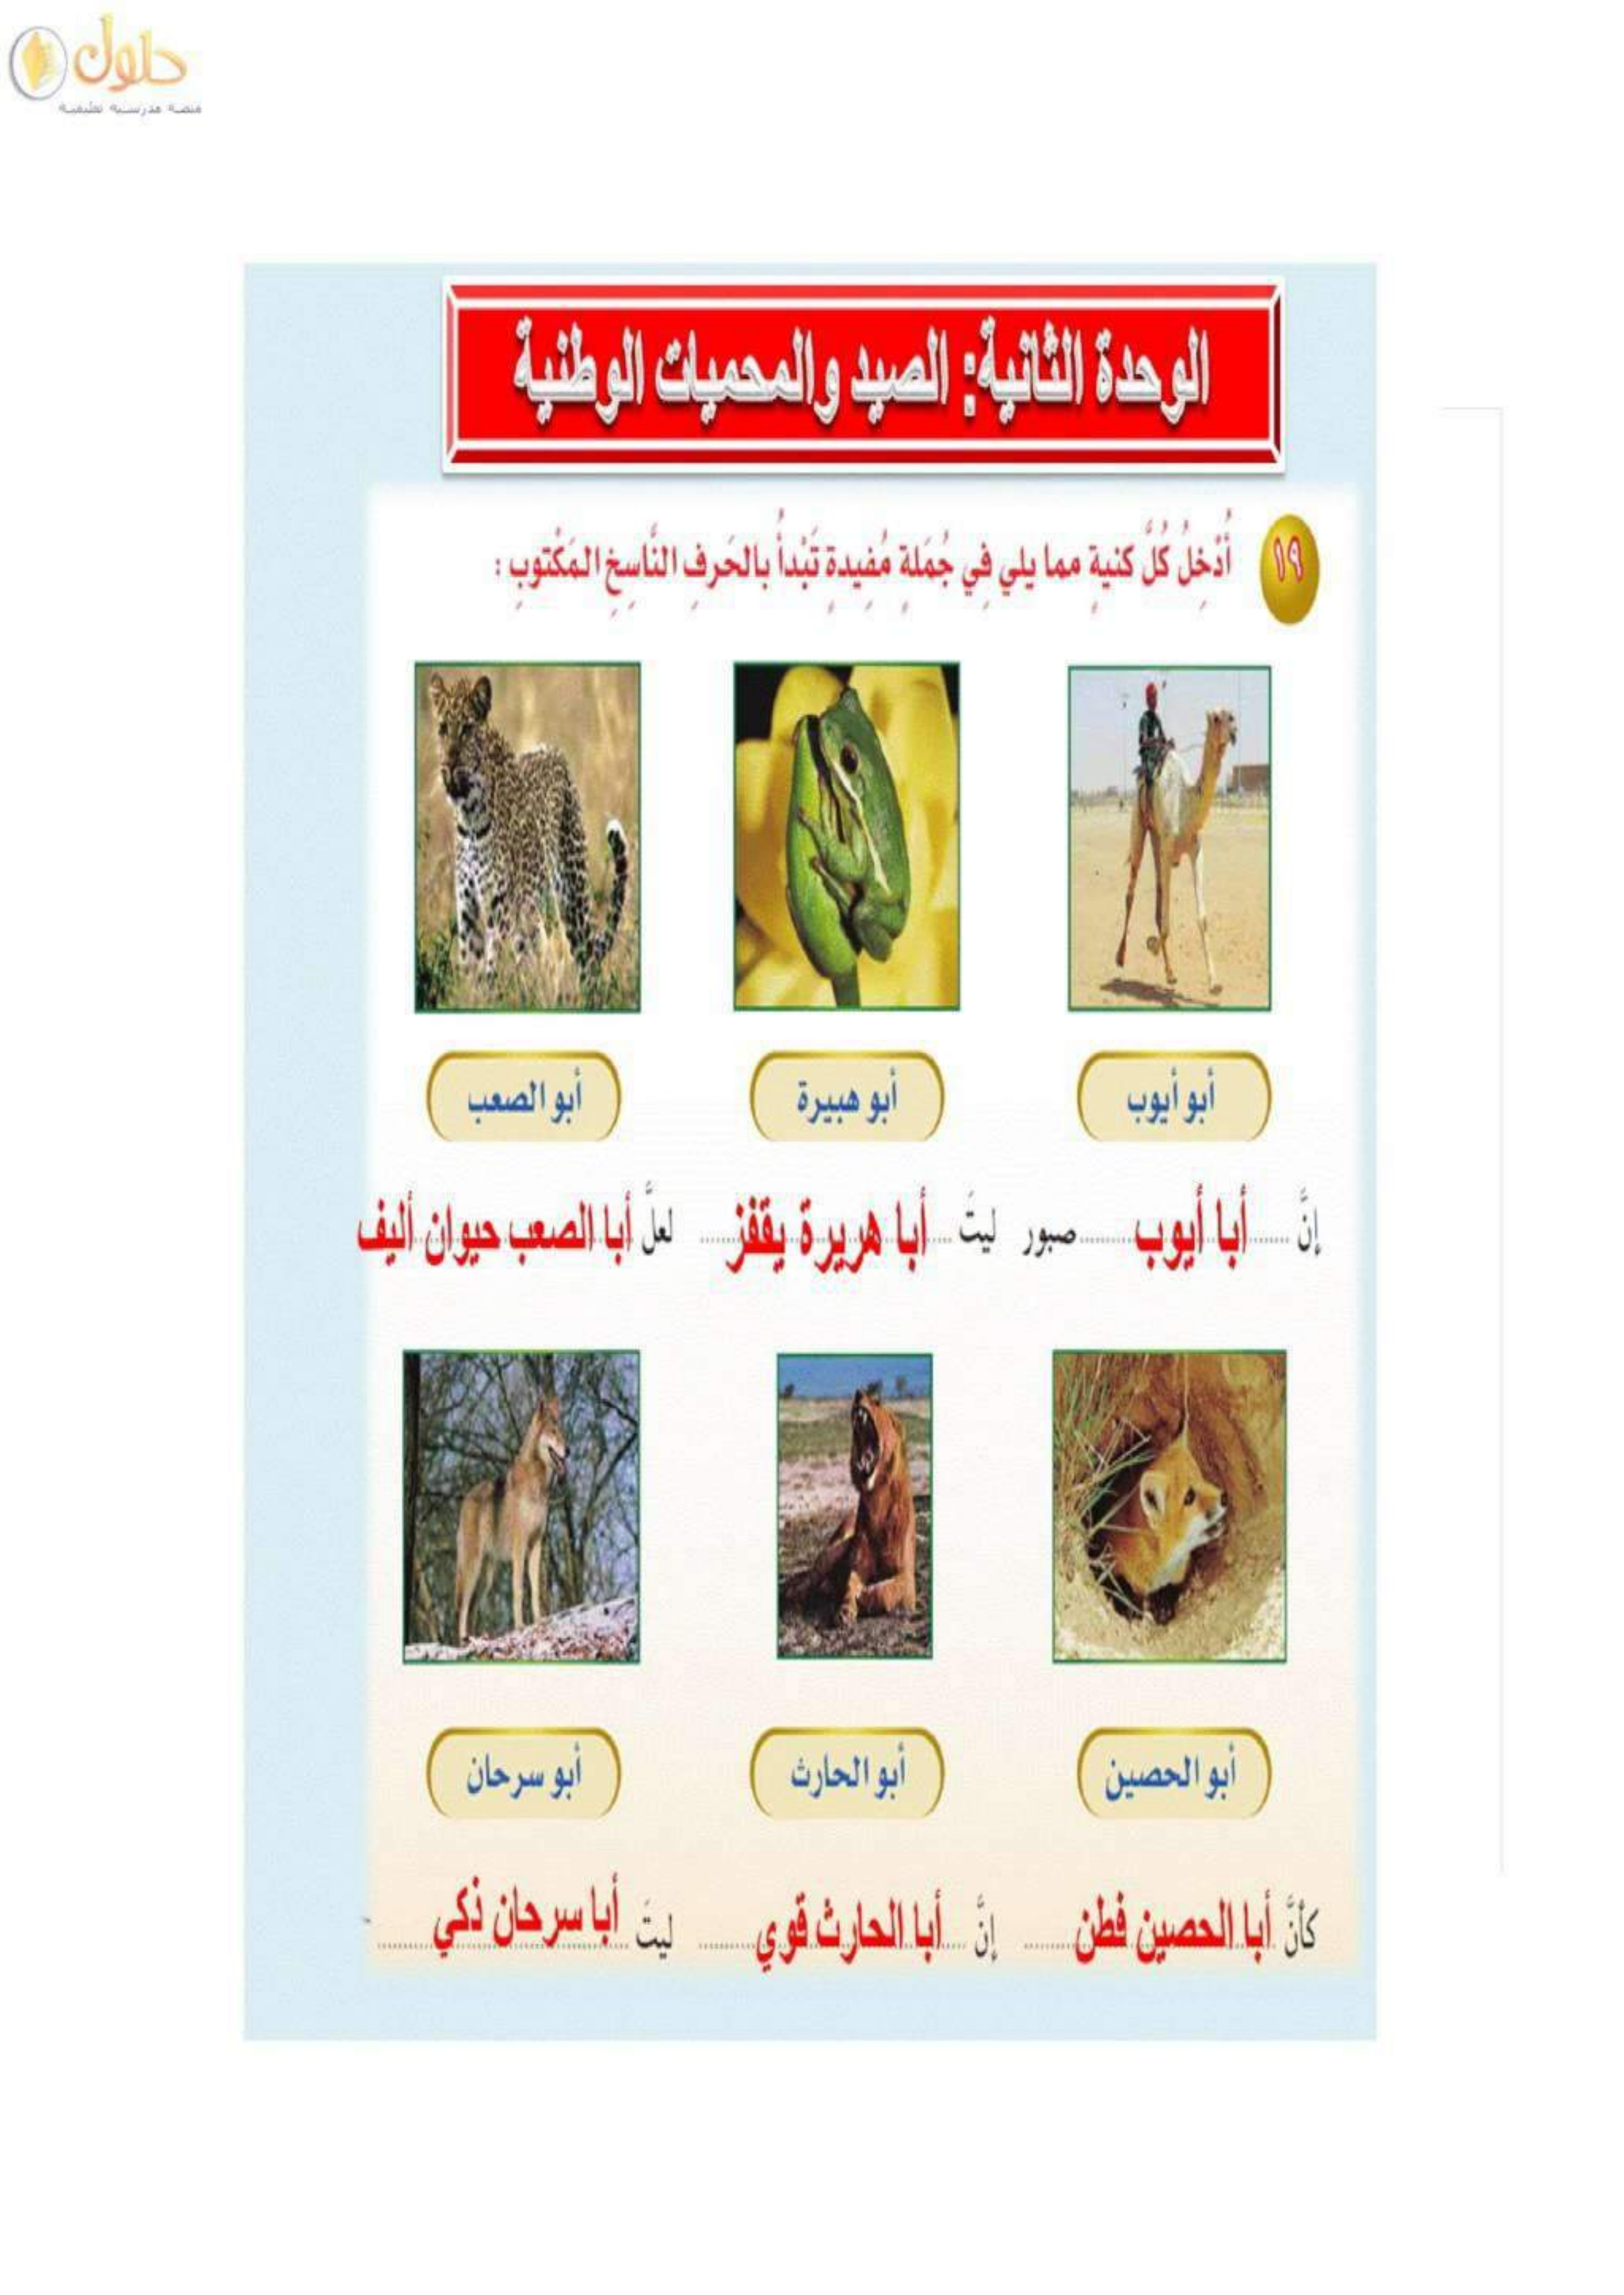 حلول
منصة مدرسية تعليمية
الوحدة الثانية: الصيد والمحميات الوطنية
١٩
أُدْخِلُ كُلَّ كنيةٍ مما يلي فِي جُمَلةٍ مُفِيدةٍ تَبْدأُ بالحَرفِ النَّاسِخِ المَكْتوبِ :
أبو أيوب
أبو هبيرة
أبو الصعب
إنَّ ...... أبا أيوب ...... صبور
ليتَ ... أبا هريرة يقفز ......
لعلَّ أبا الصعب حيوان أليف
أبو الحصين
أبو الحارث
أبو سرحان
كأنَّ أبا الحصين فطن ......
إنَّ .... أبا الحارث قوي ......
ليتَ أبا سرحان ذكي ......